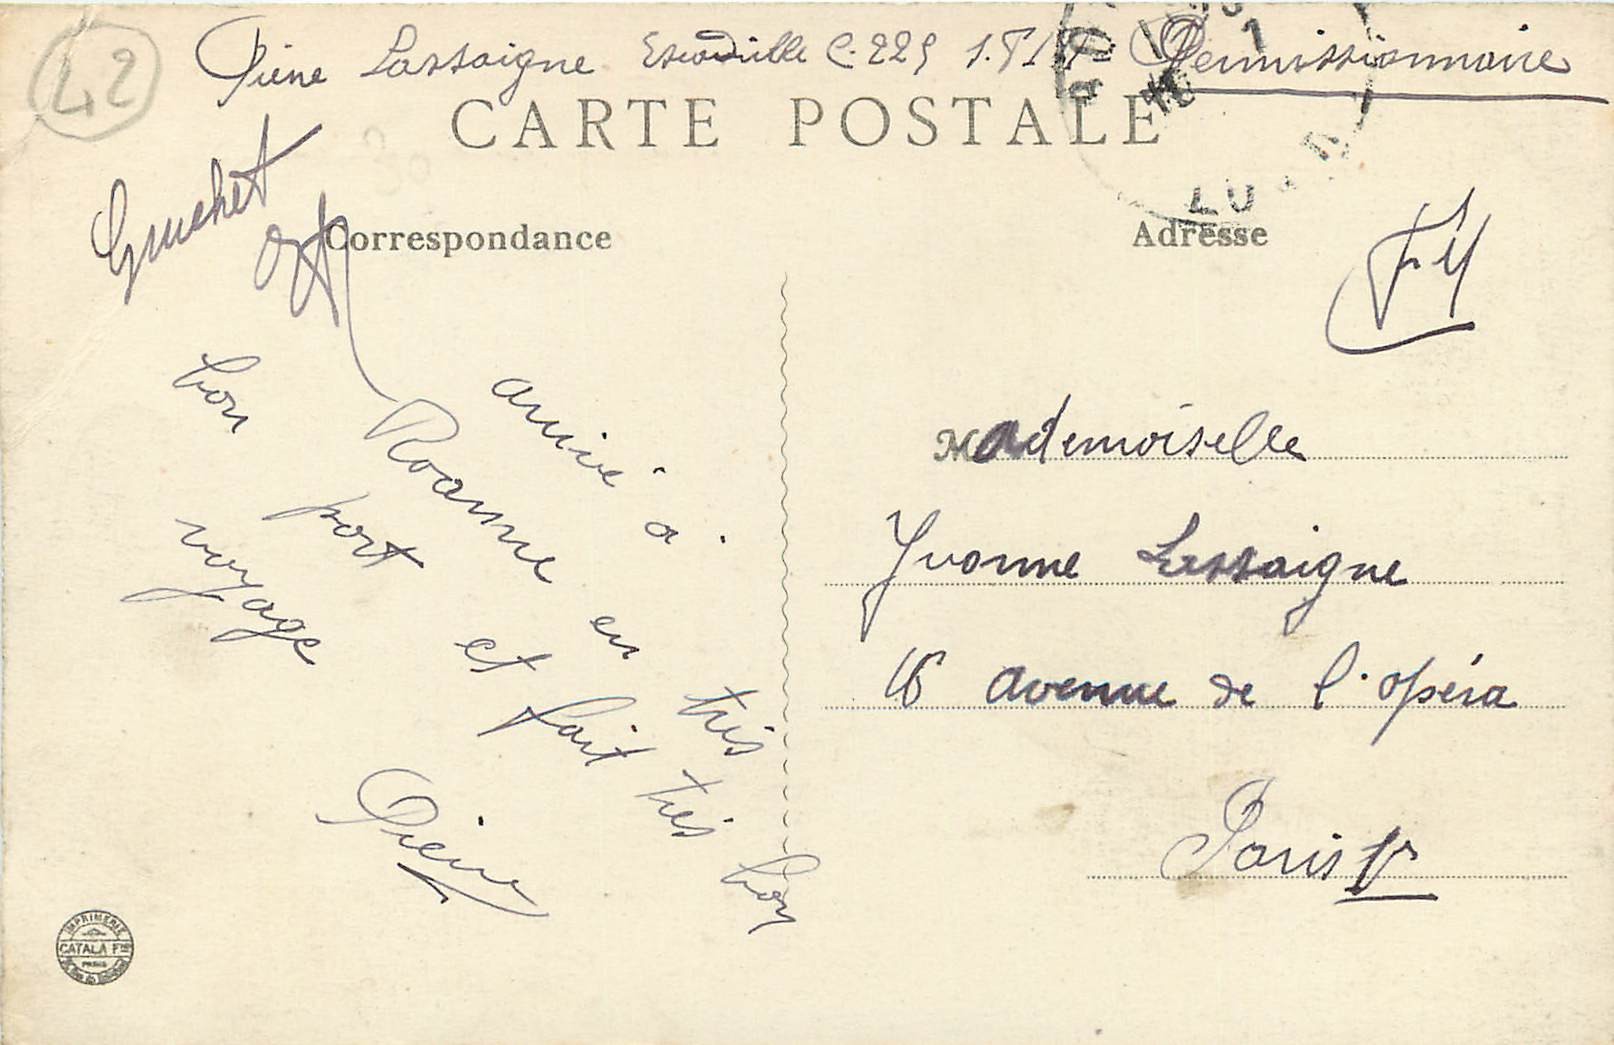 42
Pierre Lassaigne Escadrille C. 225 S.P. 17 Permissionnaire
CARTE POSTALE
Guichet
Correspondance
Adresse
FM
arrivé à
Roanne en très
bon port et fait très bon
voyage
Pierre
Mademoiselle
Yvonne Lassaigne
16 avenue de l'opéra
Paris 1er
IMPRIMERIE
CATALA Fres
PARIS